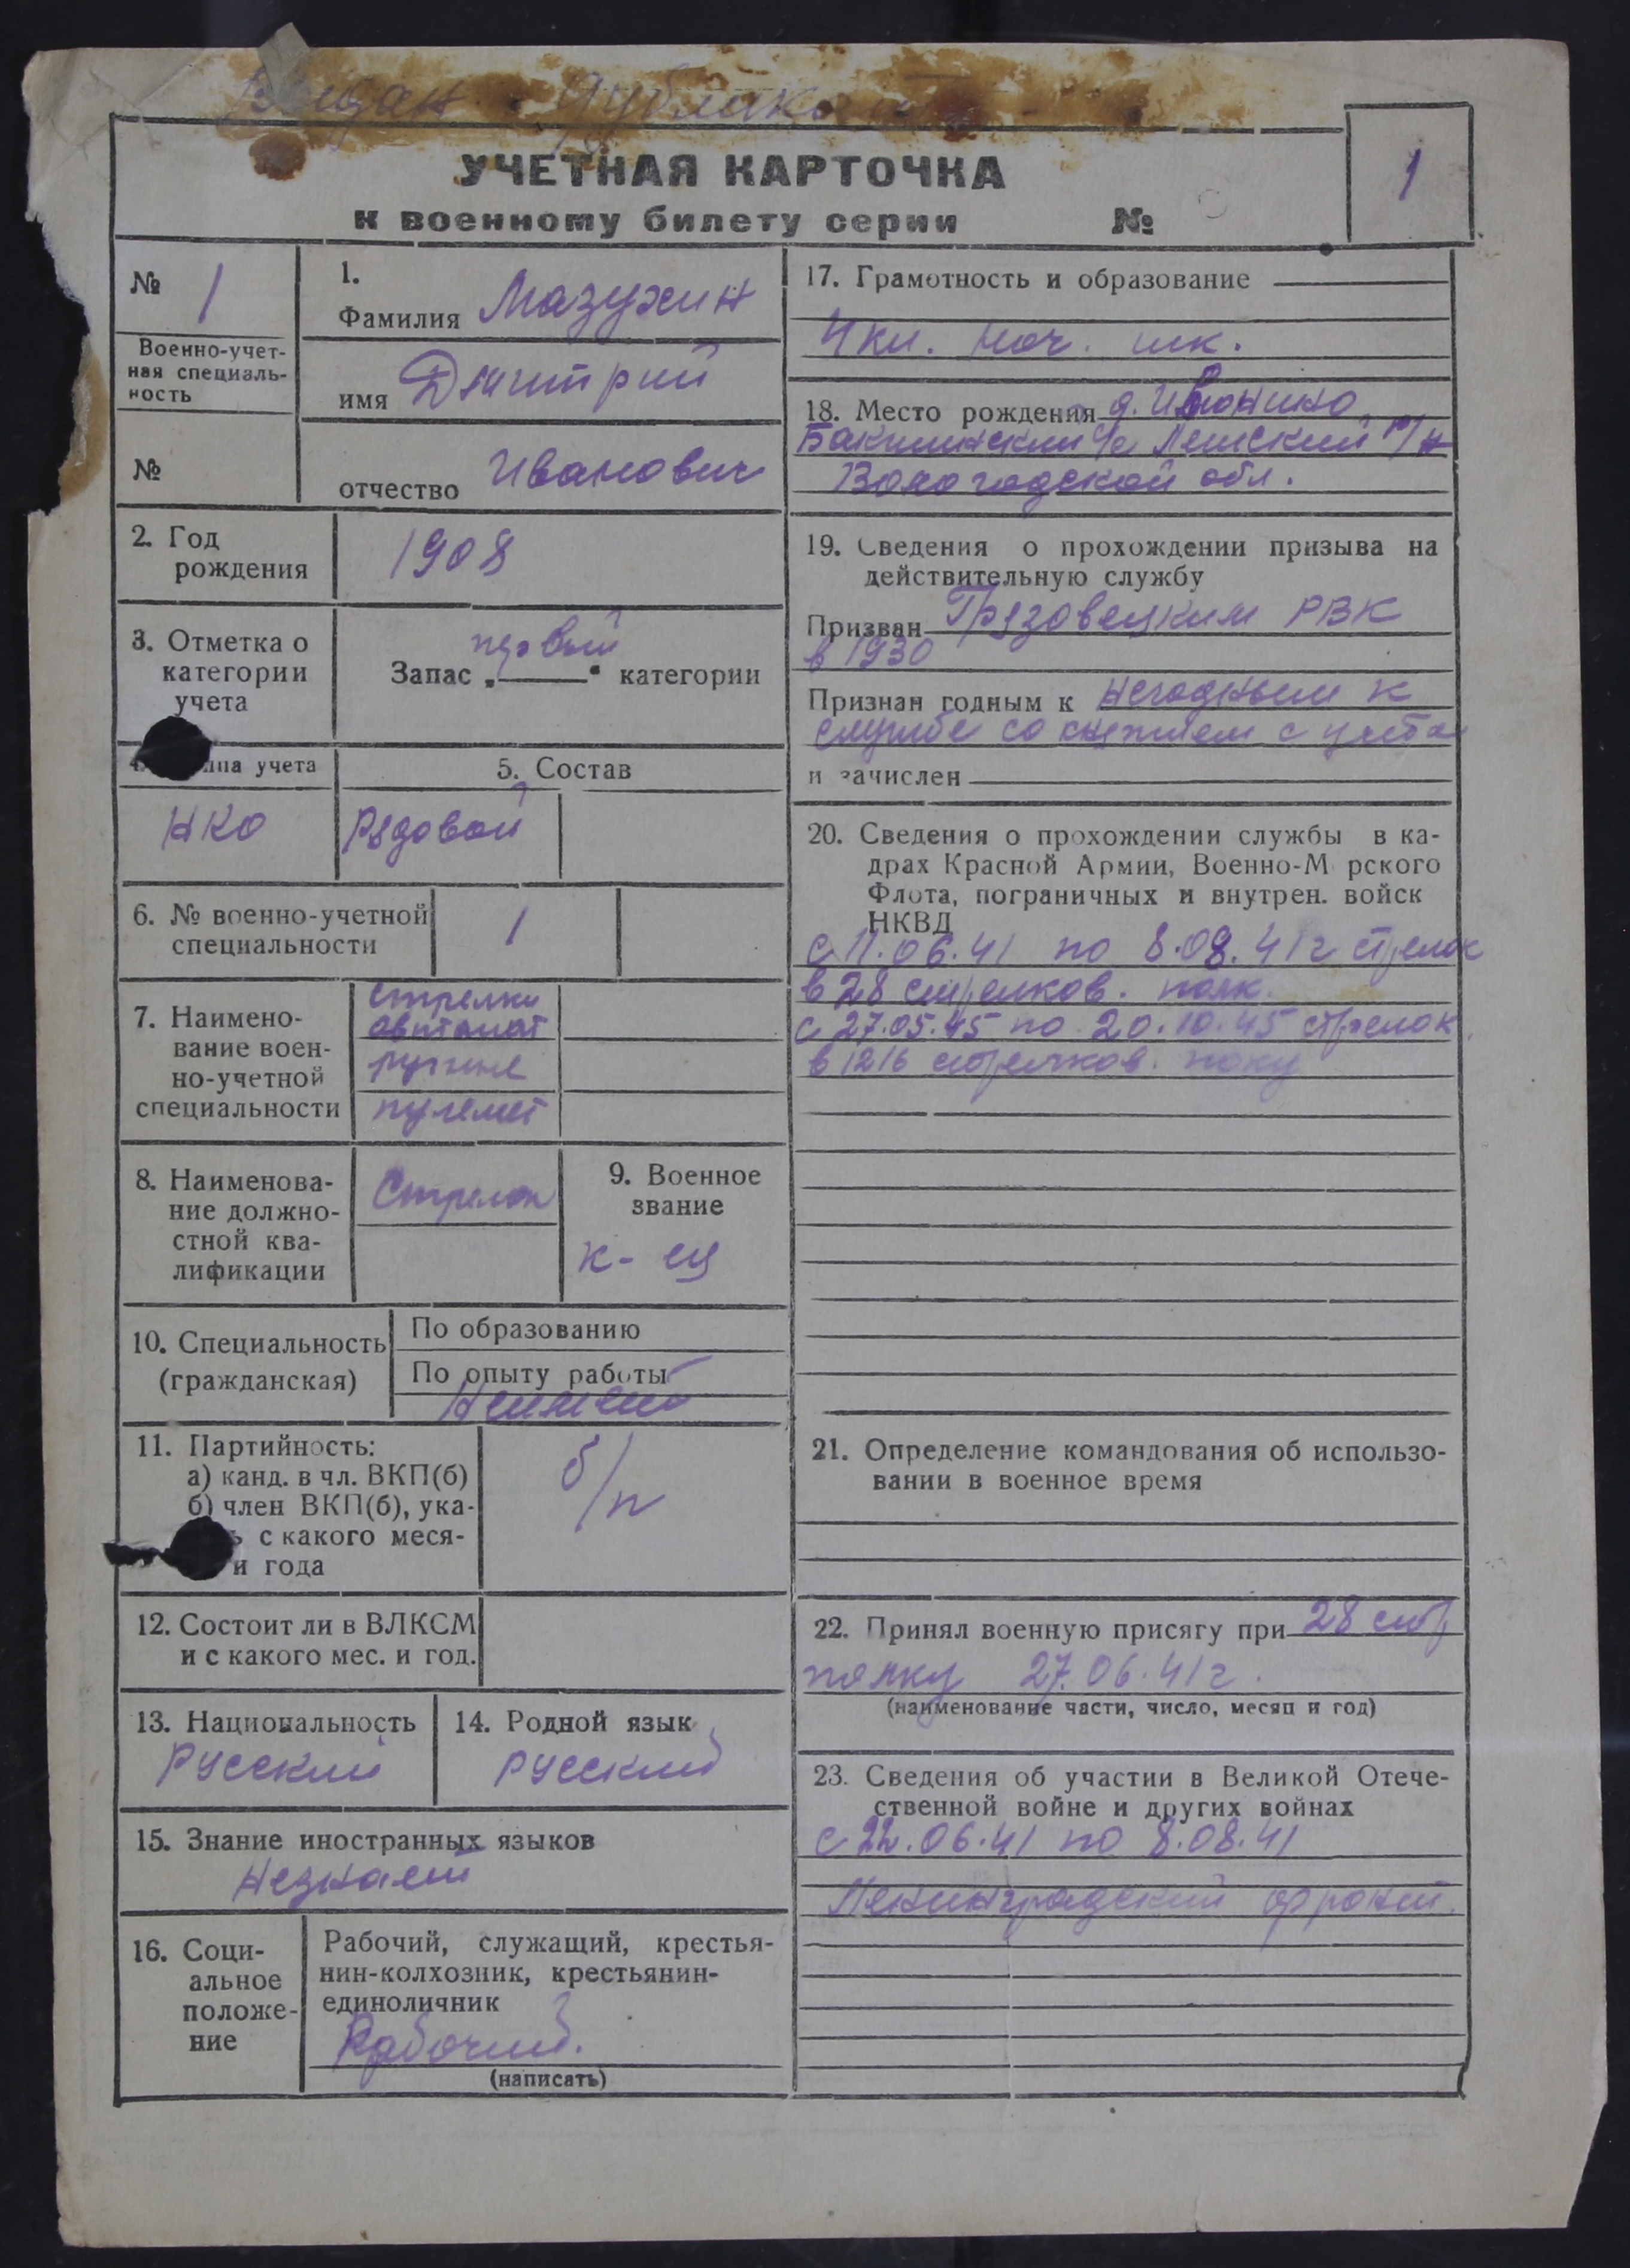 Выдан Дубликат
УЧЕТНАЯ КАРТОЧКА
к военному билету серии №
1
№ 1
Военно-учет-
ная специаль-
ность
№
1.
Фамилия Мазухин
имя Дмитрий
отчество Иванович
2. Год
рождения
1908
3. Отметка о
категории
учета
первой
Запас „ “ категории
учета
5. Состав
НКО
Рядовой
6. № военно-учетной
специальности
1
7. Наимено-
вание воен-
но-учетной
специальности
стрелки
автомат
ручные
пулемет
8. Наименова-
ние должно-
стной ква-
лификации
Стрелок
9. Военное
звание
к-ец
10. Специальность
(гражданская)
По образованию
По опыту работы
Неимеет
11. Партийность:
а) канд. в чл. ВКП(б)
б) член ВКП(б), ука-
ь с какого меся-
и года
б/п
12. Состоит ли в ВЛКСМ
и с какого мес. и год.
13. Национальность
Русский
14. Родной язык
русский
15. Знание иностранных языков
Незнает
16. Соци-
альное
положе-
ние
Рабочий, служащий, крестья-
нин-колхозник, крестьянин-
единоличник
Рабочий.
(написать)
17. Грамотность и образование
4кл. нач. шк.
18. Место рождения д. Ивонино
с/с Лежский р/н
Вологодской обл.
19. Сведения о прохождении призыва на
действительную службу
Призван Грязовецким РВК
в 1930
Признан годным к негодным к
службе со снятием с учета
и зачислен
20. Сведения о прохождении службы в ка-
драх Красной Армии, Военно-М рского
Флота, пограничных и внутрен. войск
НКВД
с 11.06.41 по 8.08.41г стрелок
в 28 стрелков. полк.
с 27.05.45 по 20.10.45 стрелок
в 1216 стрелков. полку
21. Определение командования об использо-
вании в военное время
22. Принял военную присягу при 28 стр
полку 27.06.41г.
(наименование части, число, месяц и год)
23. Сведения об участии в Великой Отече-
ственной войне и других войнах
с 22.06.41 по 8.08.41
Ленинградский фронт.